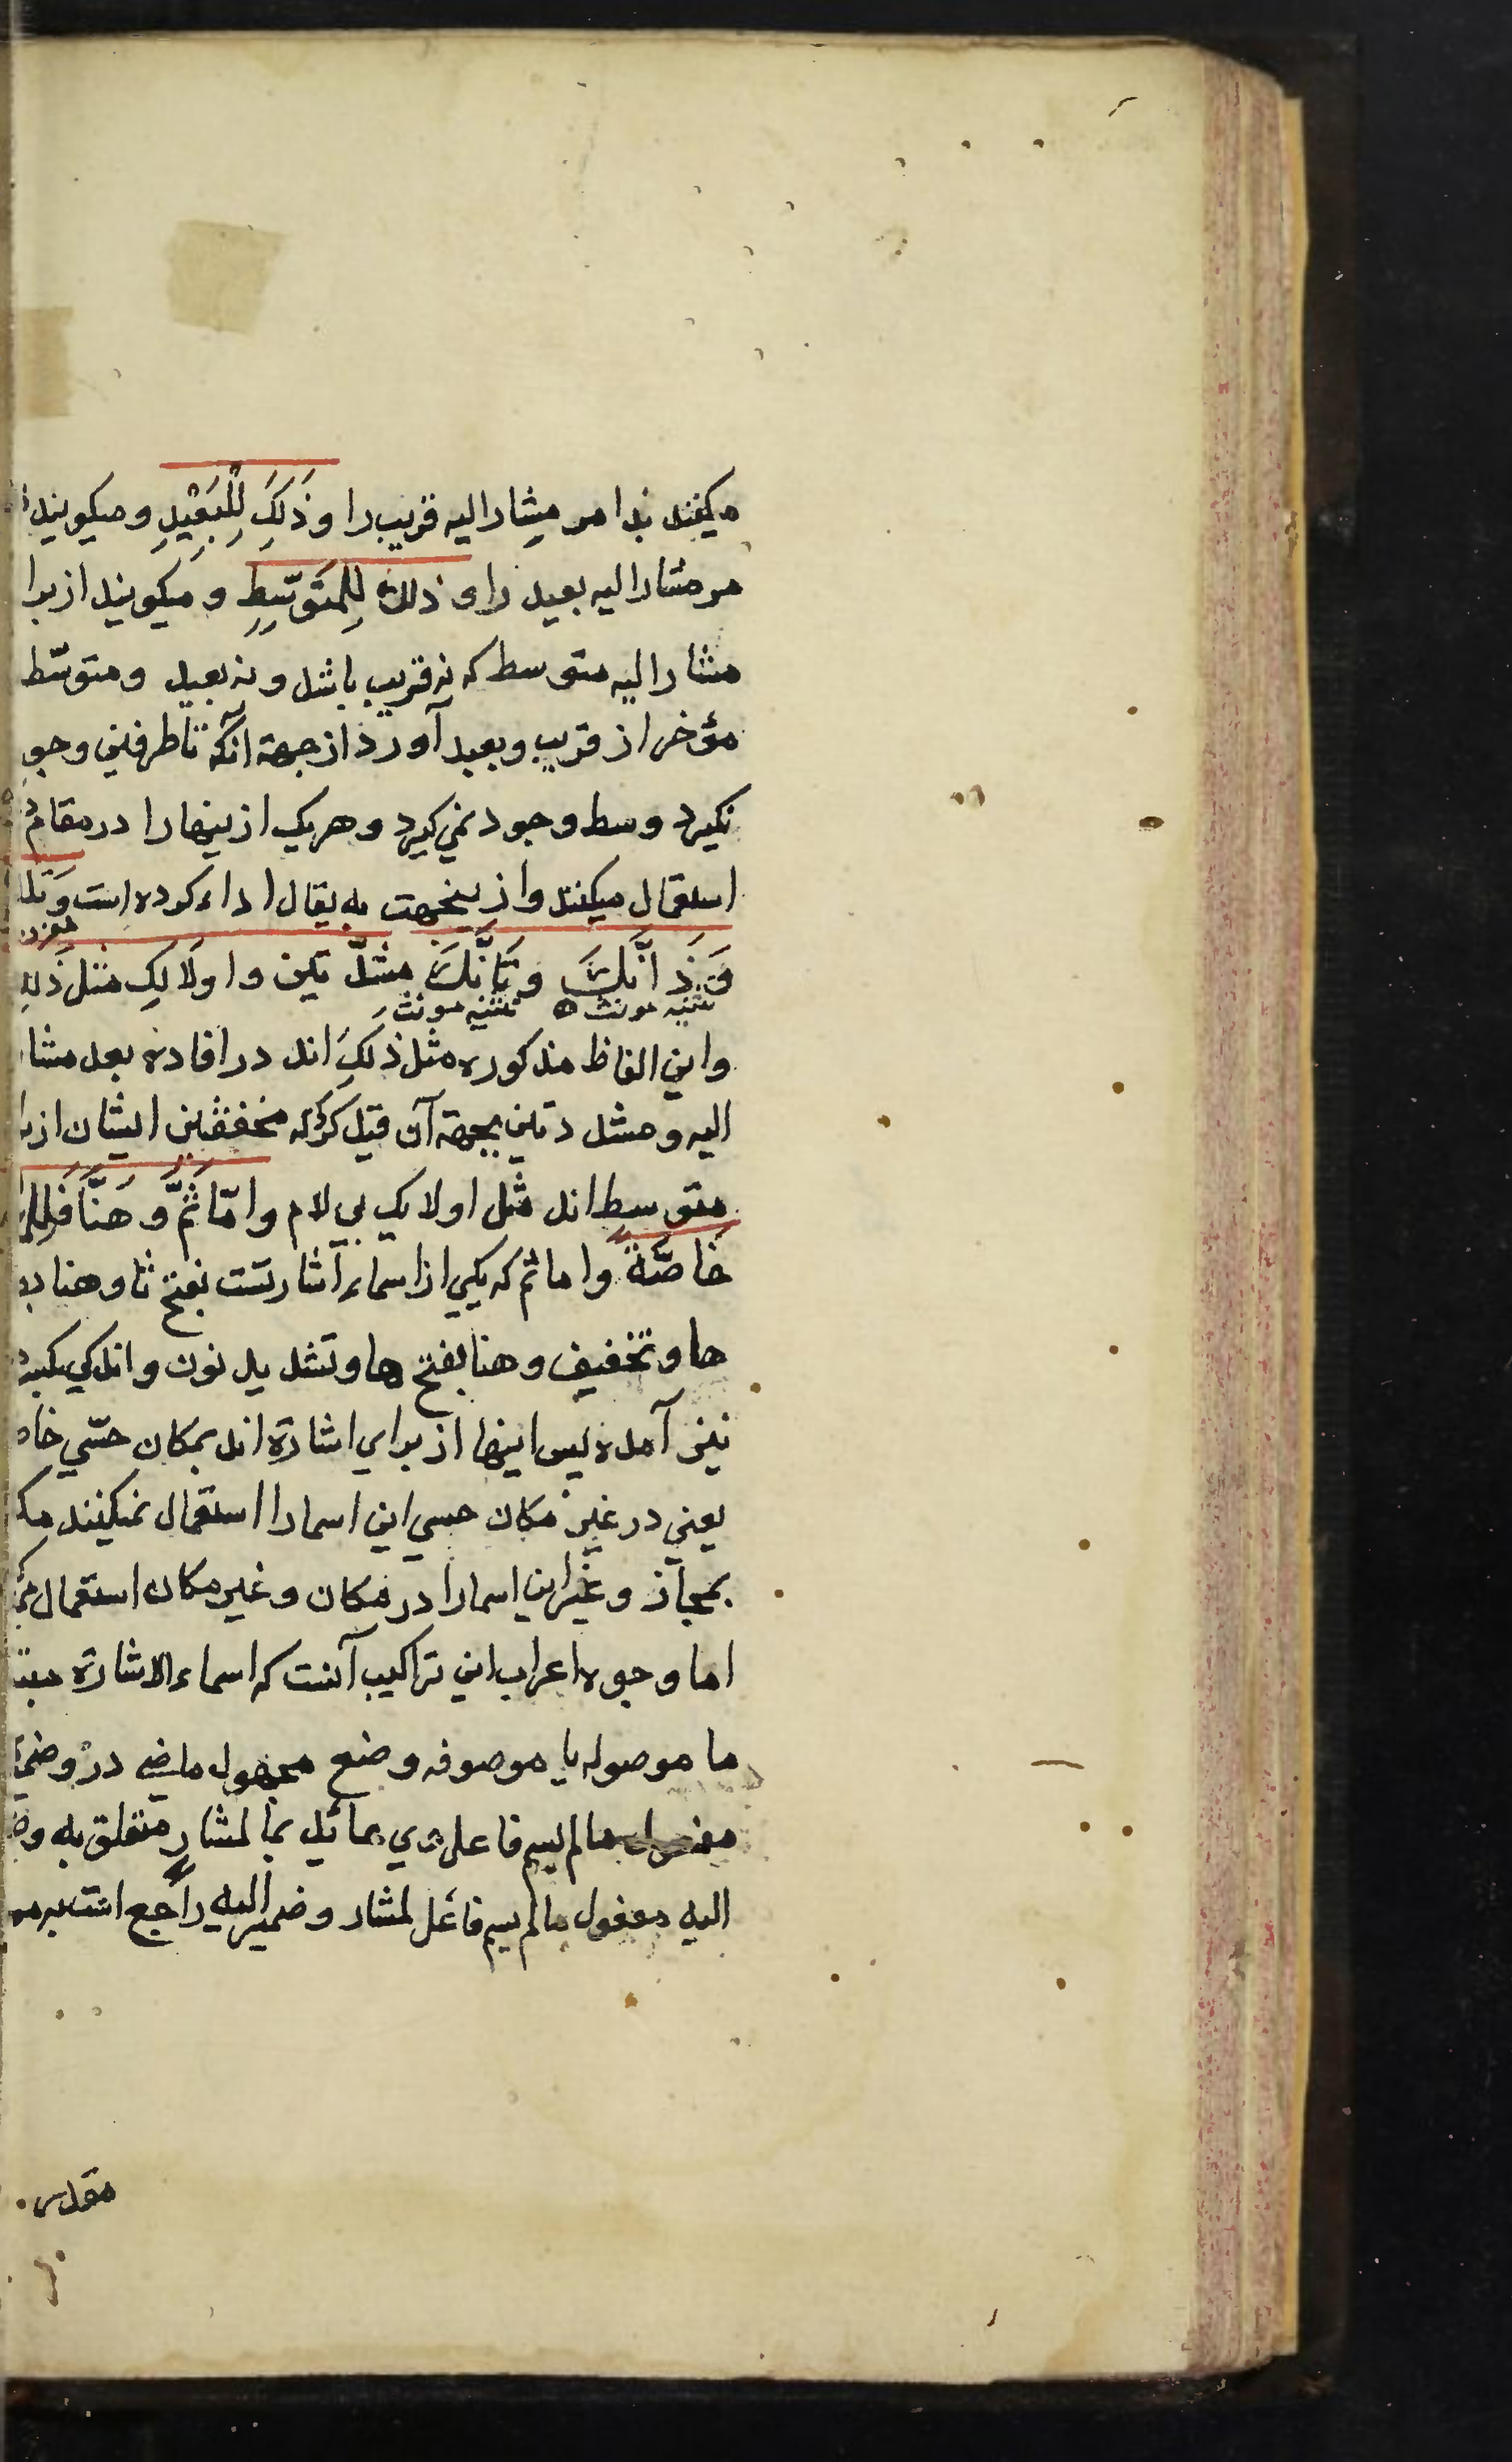 میکنند ندا مر مشار الیه قریب را و ذَلِكَ لِلْبَعِیْدِ و میکویند
مر مشار الیه بعید را و ذلك لِلمُتَوَسِّطِ و میکویند از برا
مشار الیه متوسط که نه قریب باشد و نه بعید و متوسّط
مؤخر از قریب و بعید آورد از جهة آنکه تا طرفین وجو
نکیرد وسط وجود نمی کیرد و هر یک ازینها را در مقام
استعمال میکنند و ازینجهت به یقال اداء کرده است وَتلك
وَذَانِّكَ وَتَانِّكَ مشدّدتین و اولَالِك مثل ذَلِك
تثنیه مونث تثنیه مونث
و این الفاظ مذکوره مثل ذلِكَ اند در افاده بعد مشار
الیه و مشددتین بجهة آن قید کرد که مخففتین ایشان از
متوسط اند مثل اولایک بی لام و امّا ثَمَّ وَ هَنَّا فَلِلْ
خَاصَّةً و اما ثم که یکی از اسماء اشارتست بفتح ثا و هنا
ها و تخفیف و هنا بفتح ها و تشدید نون و اندکی بکسر
نیز آمده پس اینها از برای اشارة اند بمکان حسّی خاص
یعنی در غیر مکان حسی این اسما را استعمال نمیکنند مکر
بمجاز و غیر این اسما را در مکان و غیر مکان استعمال
اما وجوه اعراب این تراکیب آنست که اسماء الاشارة مبتد
ما موصوله یا موصوفه وضع مجهول ماضی در و ضمیر
مفعول مالم یسم فاعله وی عائد بما لمشار متعلق به وضع
الیه مفعول مالم یسم فاعل لمشار و ضمیر الیه راجع است
مقدس